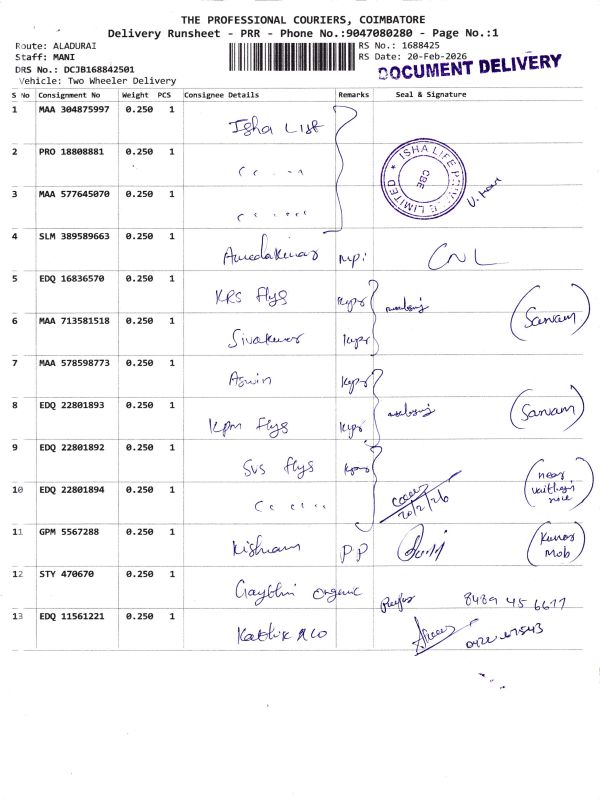 THE PROFESSIONAL COURIERS, COIMBATORE
Delivery Runsheet - PRR - Phone No.:9047080280 - Page No.:1
Route: ALADURAI
RS No.: 1688425
Staff: MANI
RS Date: 20-Feb-2026
DRS No.: DCJB168842501
DOCUMENT DELIVERY
Vehicle: Two Wheeler Delivery
S No Consignment No Weight PCS Consignee Details Remarks Seal & Signature
1 MAA 304875997 0.250 1 Isha List
2 PRO 18808881 0.250 1
ISHA LIFE LIMITED CBE
3 MAA 577645070 0.250 1
4 SLM 389589663 0.250 1
5 EDQ 16836570 0.250 1 KRS flys (Sarvam)
6 MAA 713581518 0.250 1 Sivakumar
7 MAA 578598773 0.250 1 Aswin
8 EDQ 22801893 0.250 1 Kpm flys (Sarvam)
9 EDQ 22801892 0.250 1 SVS flys (near
10 EDQ 22801894 0.250 1 20/2/26
11 GPM 5567288 0.250 1 PP (Kumar Mob)
12 STY 470670 0.250 1 organic 8489 45 6677
13 EDQ 11561221 0.250 1